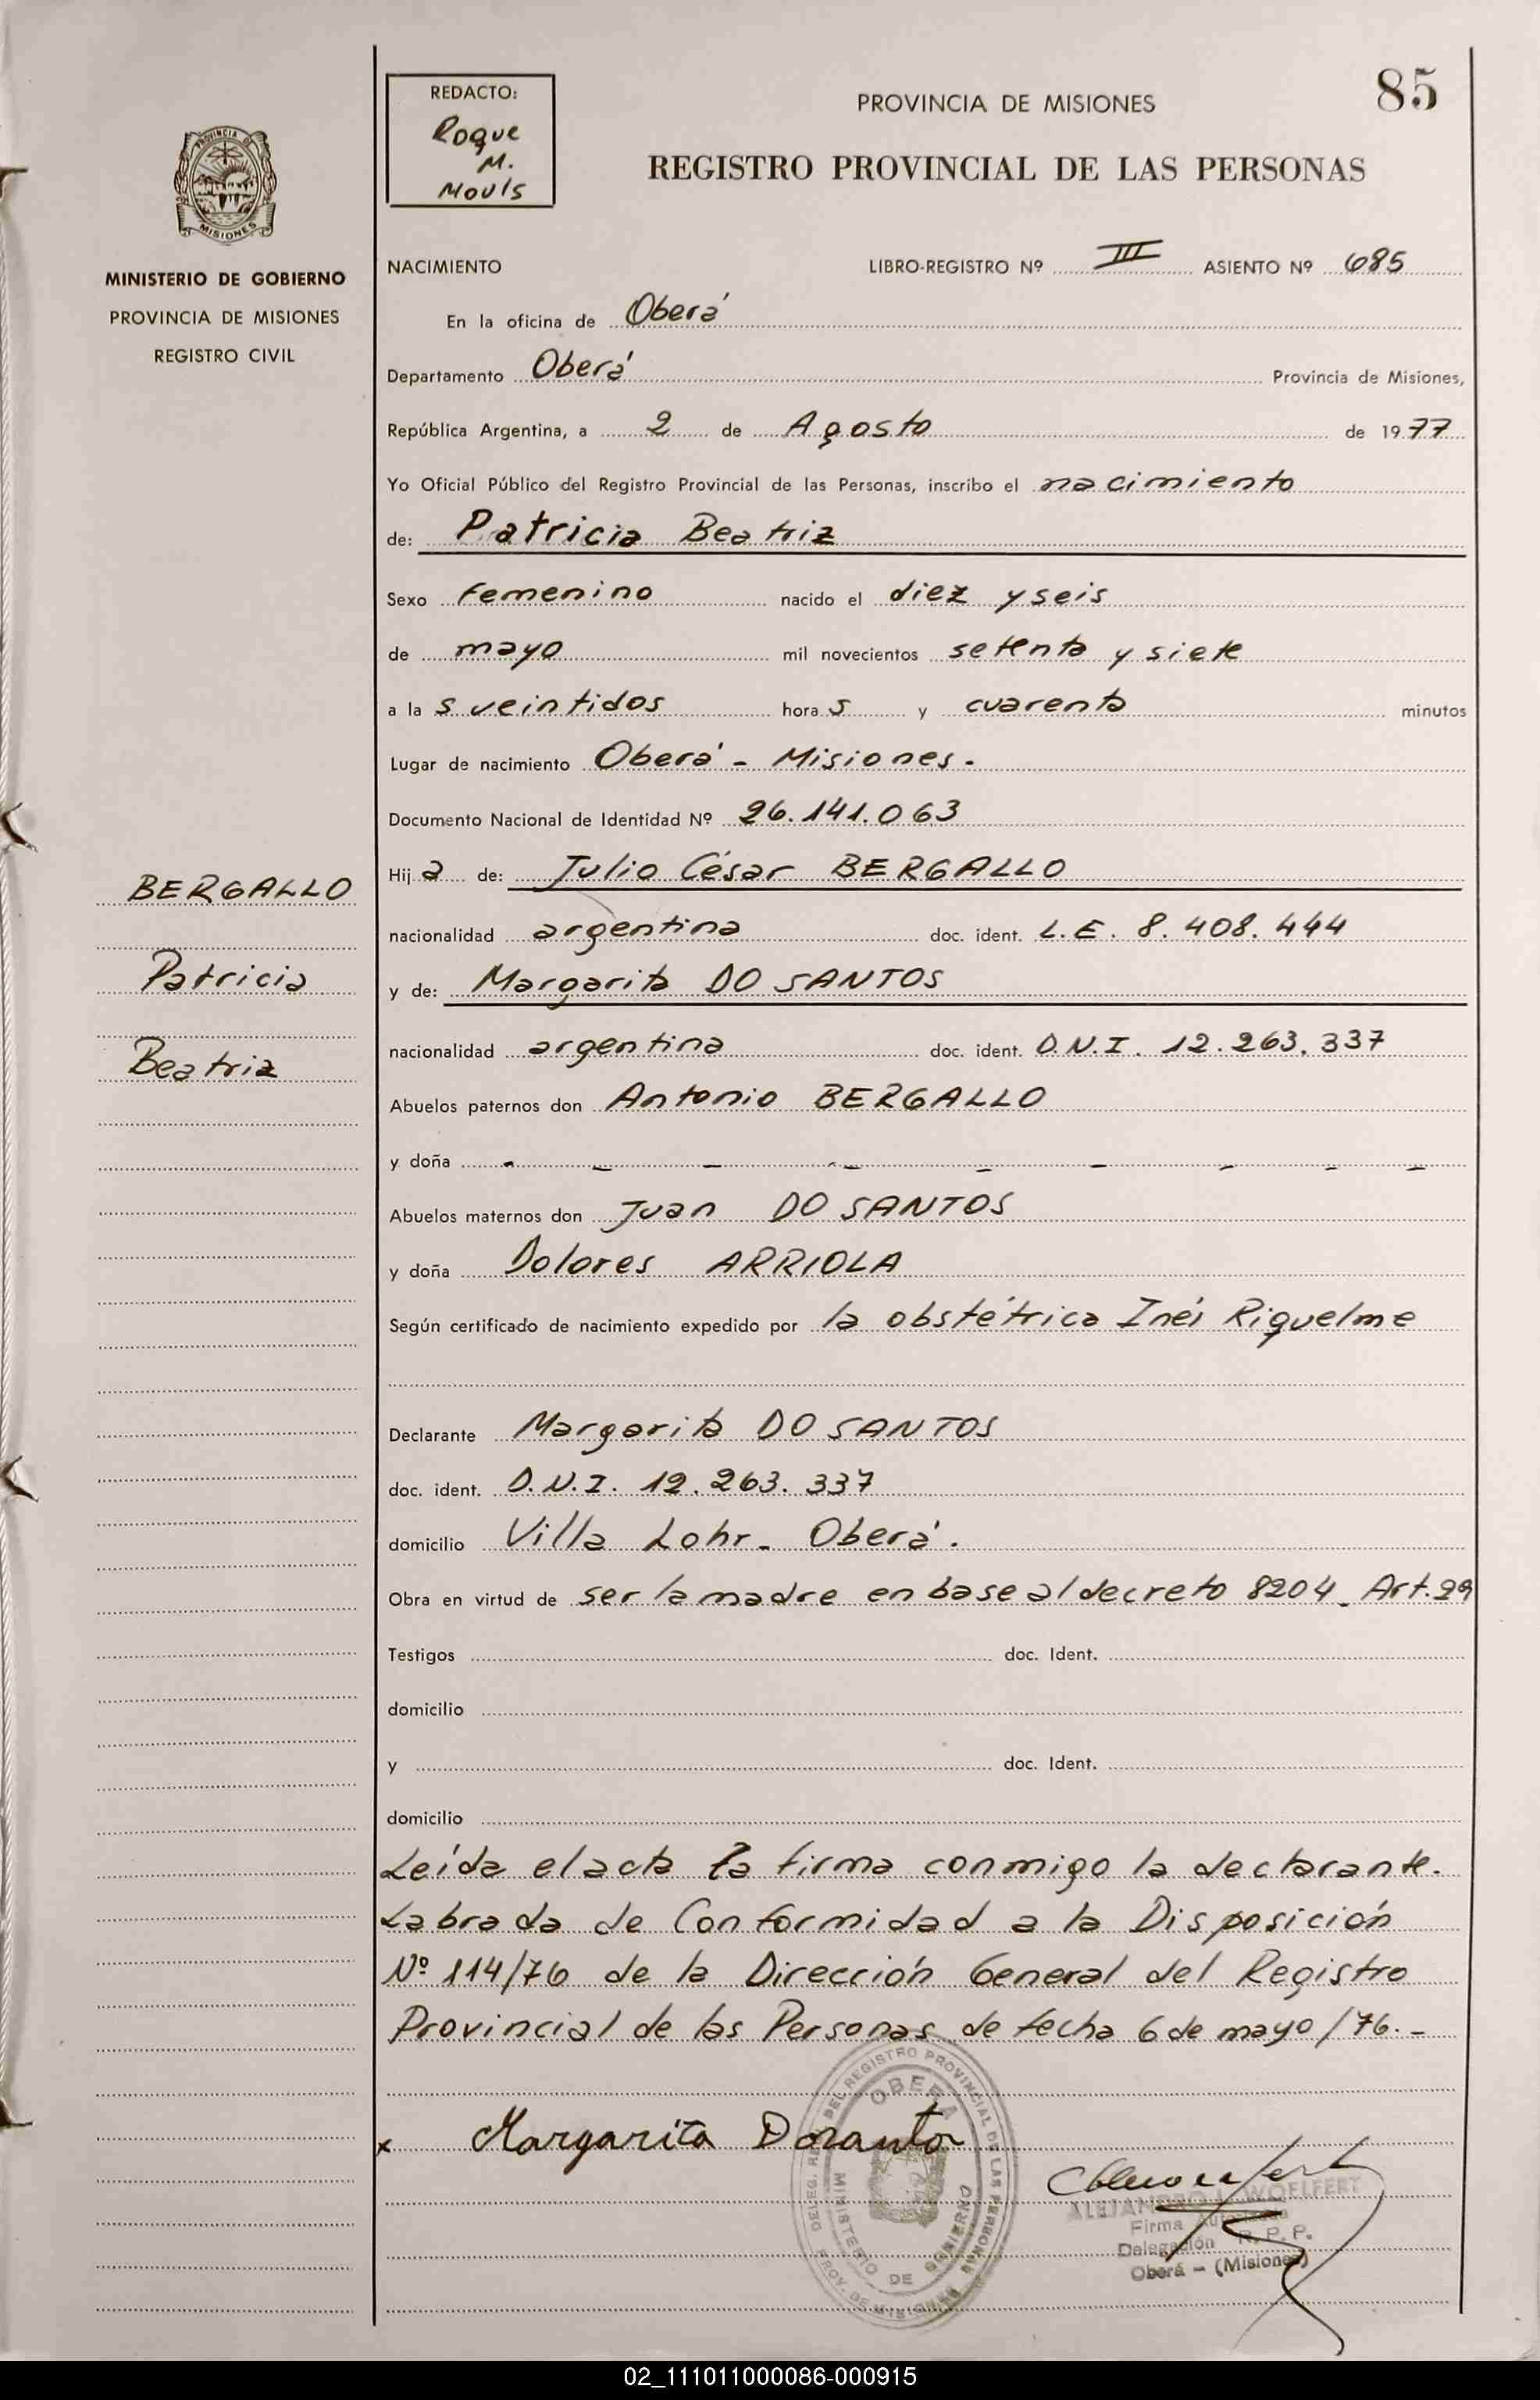 85
REDACTO:
Roque
M.
Mouls
PROVINCIA DE MISIONES
REGISTRO PROVINCIAL DE LAS PERSONAS
PROVINCIA DE
MISIONES
MINISTERIO DE GOBIERNO
PROVINCIA DE MISIONES
REGISTRO CIVIL
NACIMIENTO LIBRO-REGISTRO Nº III ASIENTO Nº 685
En la oficina de Oberá
Departamento Oberá Provincia de Misiones,
República Argentina, a 2 de Agosto de 1977
Yo Oficial Público del Registro Provincial de las Personas, inscribo el nacimiento
de: Patricia Beatriz
Sexo femenino nacido el diez y seis
de mayo mil novecientos setenta y siete
a la s veintidos hora s y cuarenta minutos
Lugar de nacimiento Oberá - Misiones.
Documento Nacional de Identidad Nº 26.141.063
Hij a de: Julio César BERGALLO
nacionalidad argentina doc. ident. L.E. 8.408.444
y de: Margarita DO SANTOS
nacionalidad argentina doc. ident. D.N.I. 12.263.337
Abuelos paternos don Antonio BERGALLO
y doña - - - - - - - - -
Abuelos maternos don Juan DO SANTOS
y doña Dolores ARRIOLA
Según certificado de nacimiento expedido por la obstétrica Inés Riquelme
BERGALLO
Patricia
Beatriz
Declarante Margarita DO SANTOS
doc. ident. D.N.I. 12.263.337
domicilio Villa Lohr - Oberá.
Obra en virtud de ser la madre en base al decreto 8204 - Art. 29
Testigos doc. Ident.
domicilio
y doc. Ident.
domicilio
Leída el acta la firma conmigo la declarante.
Labrada de Conformidad a la Disposición
Nº 114/76 de la Dirección General del Registro
Provincial de las Personas de fecha 6 de mayo/76.-
x Margarita Dosanto
DELEG. REG. DEL REGISTRO PROVINCIAL DE LAS PERSONAS
OBERA
MINISTERIO DE GOBIERNO
PROV. DE MISIONES
ALEJANDRO L. WOELFERT
Firma Autorizada
Delegación R. P. P.
Oberá - (Misiones)
02_111011000086-000915